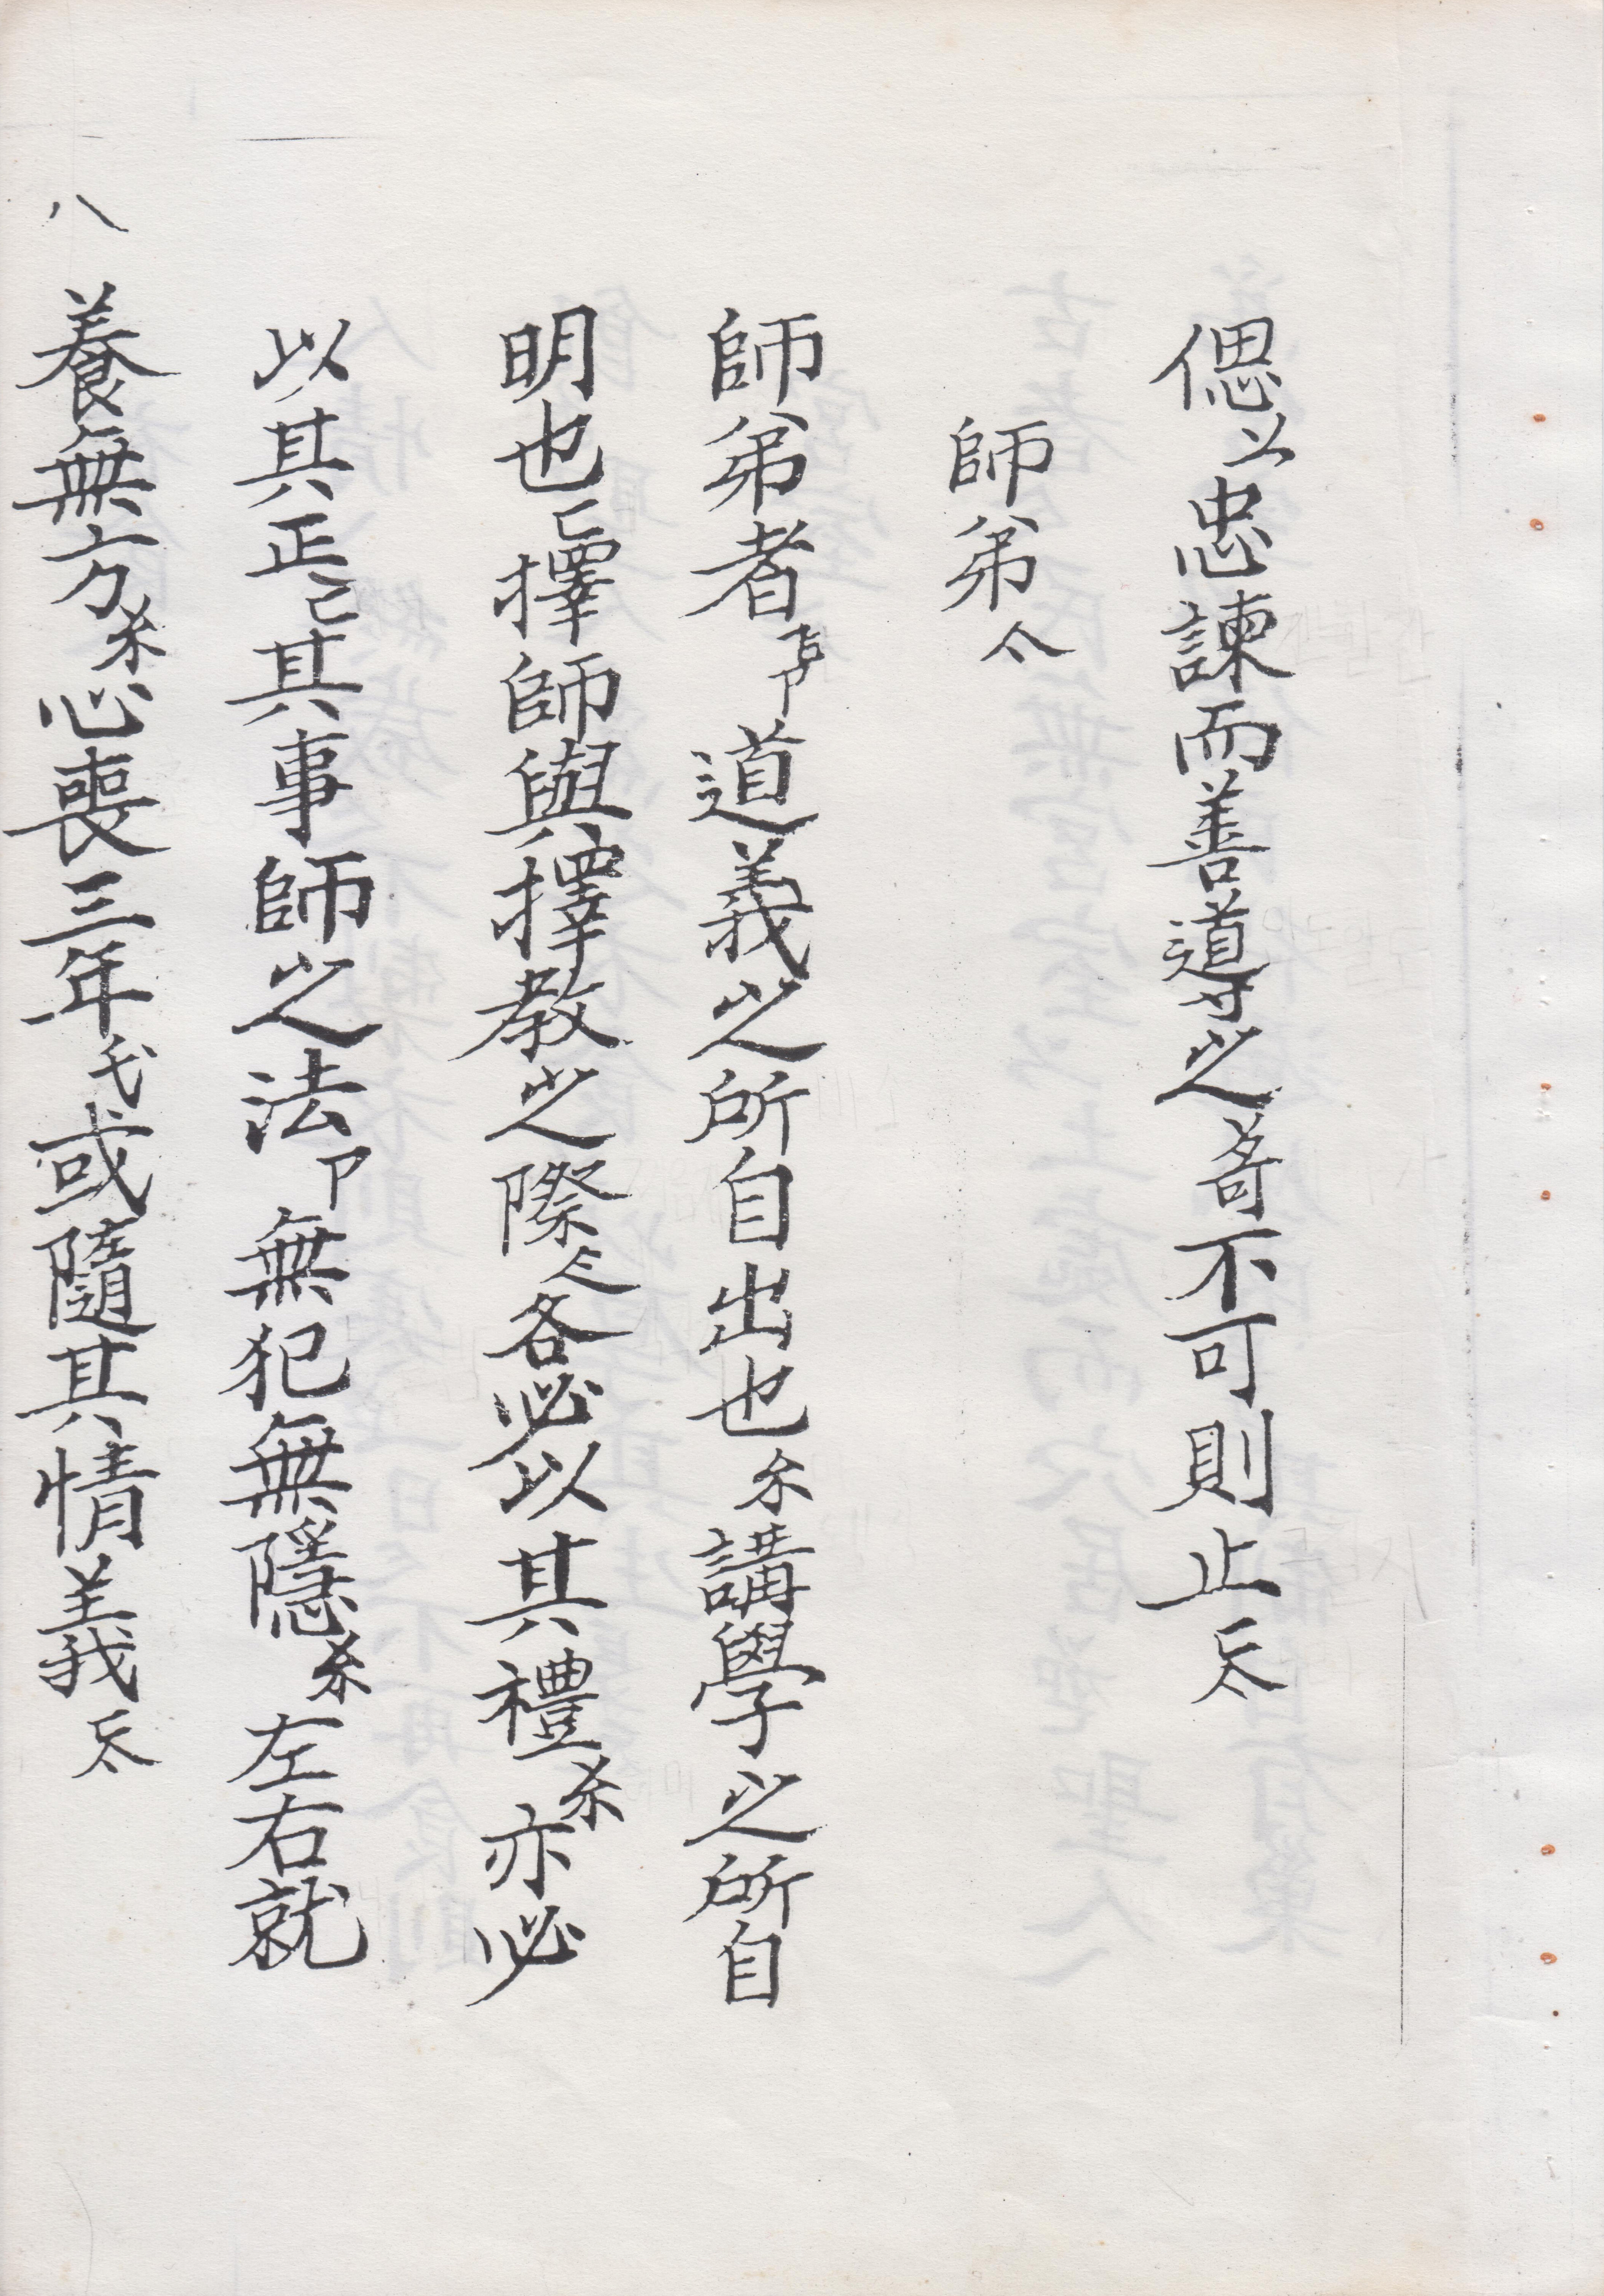 偲以忠諫而善道寸之哥不可則止丕
師弟仒
師弟者㫆卩道義之所自出也尓講學之所自
明也匕擇師與擇教之際厼各必以其禮厼亦必
以其正己其事師之法卩無犯無隱厼左右就
養無方厼心喪三年弋或隨其情義丕
八